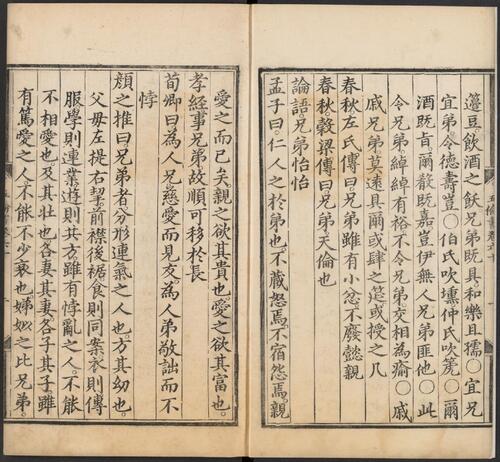 籩豆飲酒之飫兄弟既具和樂且孺○宜兄
宜弟令德壽豈○伯氏吹壎仲氏吹箎○爾
酒既旨爾殽既嘉豈伊異人兄弟匪他○此
令兄弟綽綽有裕不令兄弟交相為瘉○戚
戚兄弟莫遠具爾或肆之筵或授之几
春秋左氏傳曰兄弟雖有小忿不廢懿親
春秋穀梁傳曰兄弟天倫也
論語兄弟怡怡
孟子曰仁人之於弟也不藏怒焉不宿怨焉親
愛之而已矣親之欲其貴也愛之欲其富也
孝經事兄弟故順可移於長
荀卿曰為人兄慈愛而見友為人弟敬詘而不
悖
顏之推曰兄弟者分形連氣之人也方其幼也
父母左提右挈前襟後裾食則同案衣則傳
服學則連業遊則共方雖有悖亂之人不能
不相愛也及其壯也各妻其妻各子其子雖
有篤愛之人不能不少衰也娣姒之比兄弟